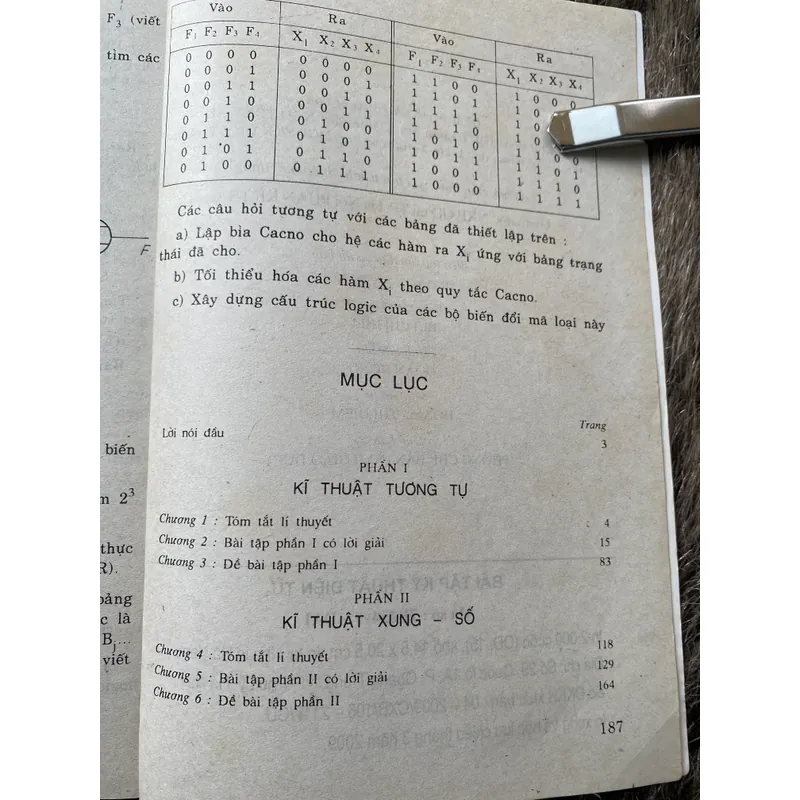 F₃ (viết
tìm các
F
biến
n 2³
thực
R).
c là
Bⱼ...
viết
Vào Ra Vào Ra
F₁ F₂ F₃ F₄ X₁ X₂ X₃ X₄ F₁ F₂ F₃ F₄ X₁ X₂ X₃ X₄
0 0 0 0 0 0 0 0 1 1 0 0 1 0 0 0
0 0 0 1 0 0 0 1 1 1 0 1 1 0
0 0 1 1 0 0 1 0 1 1 1 1 1 0
0 0 1 0 0 0 1 1 1 1 1 0 1 0
0 1 1 0 0 1 0 0 1 0 1 0 1 1 0 0
0 1 1 1 0 1 0 1 1 0 1 1 1 1 0 1
0 1 0 1 0 1 1 0 1 0 0 1 1 1 1 0
0 1 0 0 0 1 1 1 1 0 0 0 1 1 1 1
Các câu hỏi tương tự với các bảng đã thiết lập trên :
a) Lập bìa Cacno cho hệ các hàm ra Xᵢ ứng với bảng trạng
thái đã cho.
b) Tối thiểu hóa các hàm Xᵢ theo quy tắc Cacno.
c) Xây dựng cấu trúc logic của các bộ biến đổi mã loại này
MỤC LỤC
Trang
Lời nói đầu 3
PHẦN I
KĨ THUẬT TƯƠNG TỰ
Chương 1 : Tóm tắt lí thuyết 4
Chương 2 : Bài tập phần I có lời giải 15
Chương 3 : Đề bài tập phần I 83
PHẦN II
KĨ THUẬT XUNG - SỐ
Chương 4 : Tóm tắt lí thuyết 118
Chương 5 : Bài tập phần II có lời giải 129
Chương 6 : Đề bài tập phần II 164
187